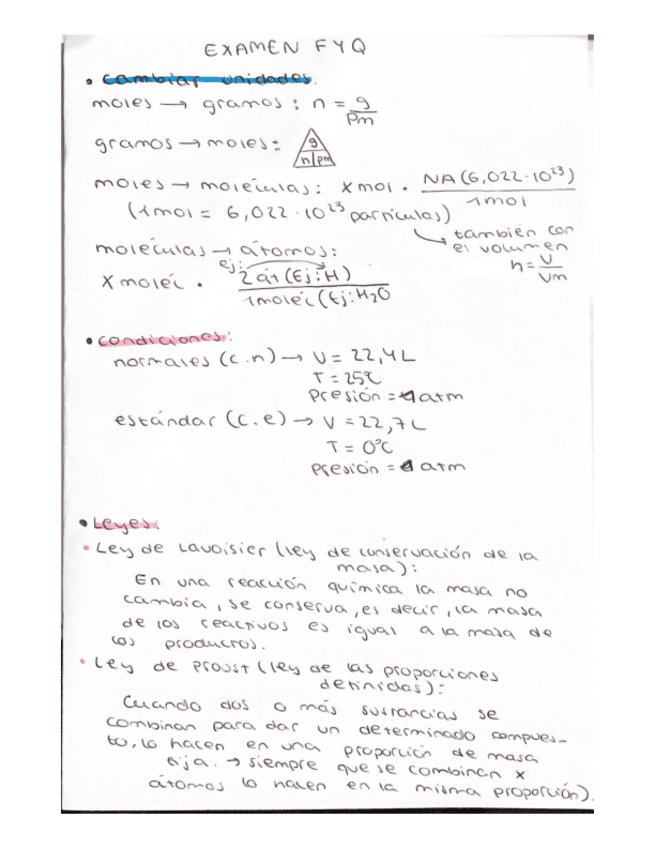 EXAMEN FYQ
• cambiar unidades.
moles → gramos : n = g/Pm
gramos → moles : g n pm
moles → moléculas : x mol · NA (6,022·10²³)/1mol
(1mol = 6,022·10²³ partículas)
↳ también con
el volumen
n = V/Vm
moléculas → átomos:
ej:
X moléc · 2 át (Ej: H)/1 moléc (Ej: H₂O
• condiciones:
normales (c.n) → V = 22,4L
T = 25ºC
Presión = 1 atm
estándar (c.e) → V = 22,7L
T = 0ºC
Presión = 1 atm
• Leyes:
• Ley de Lavoisier (ley de conservación de la
masa):
En una reacción química la masa no
cambia, se conserva, es decir, la masa
de los reactivos es igual a la masa de
los productos.
• Ley de Proust (ley de las proporciones
definidas):
Cuando dos o más sustancias se
combinan para dar un determinado compues-
to, lo hacen en una proporción de masa
fija. → siempre que se combinan x
átomos lo hacen en la misma proporción).